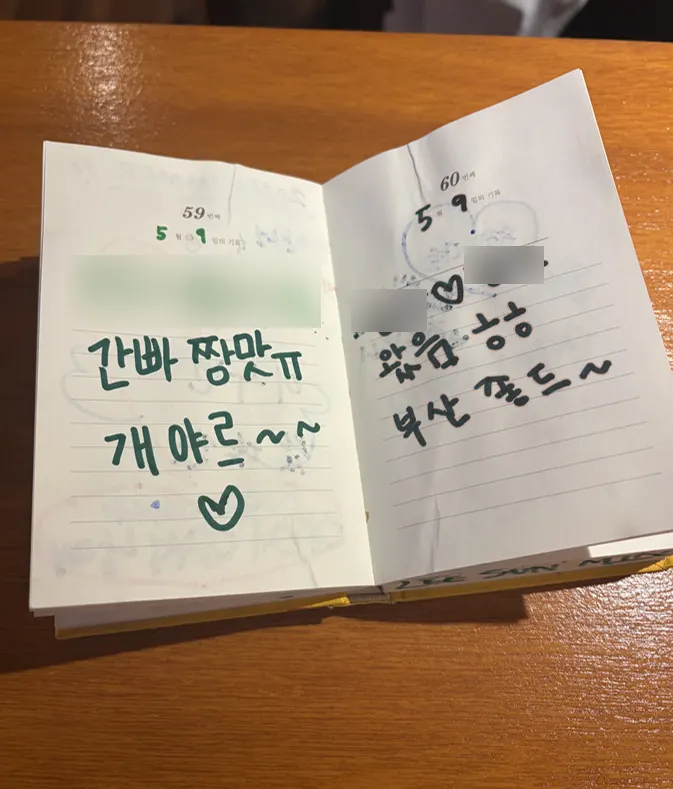 59번째
5월 9일의 기록
간빠 짱맛ㅠ
개야르~~
♡
60번째
5월 9일의 기록
♡
왔음. ㅎㅎ
부산 쫄드~